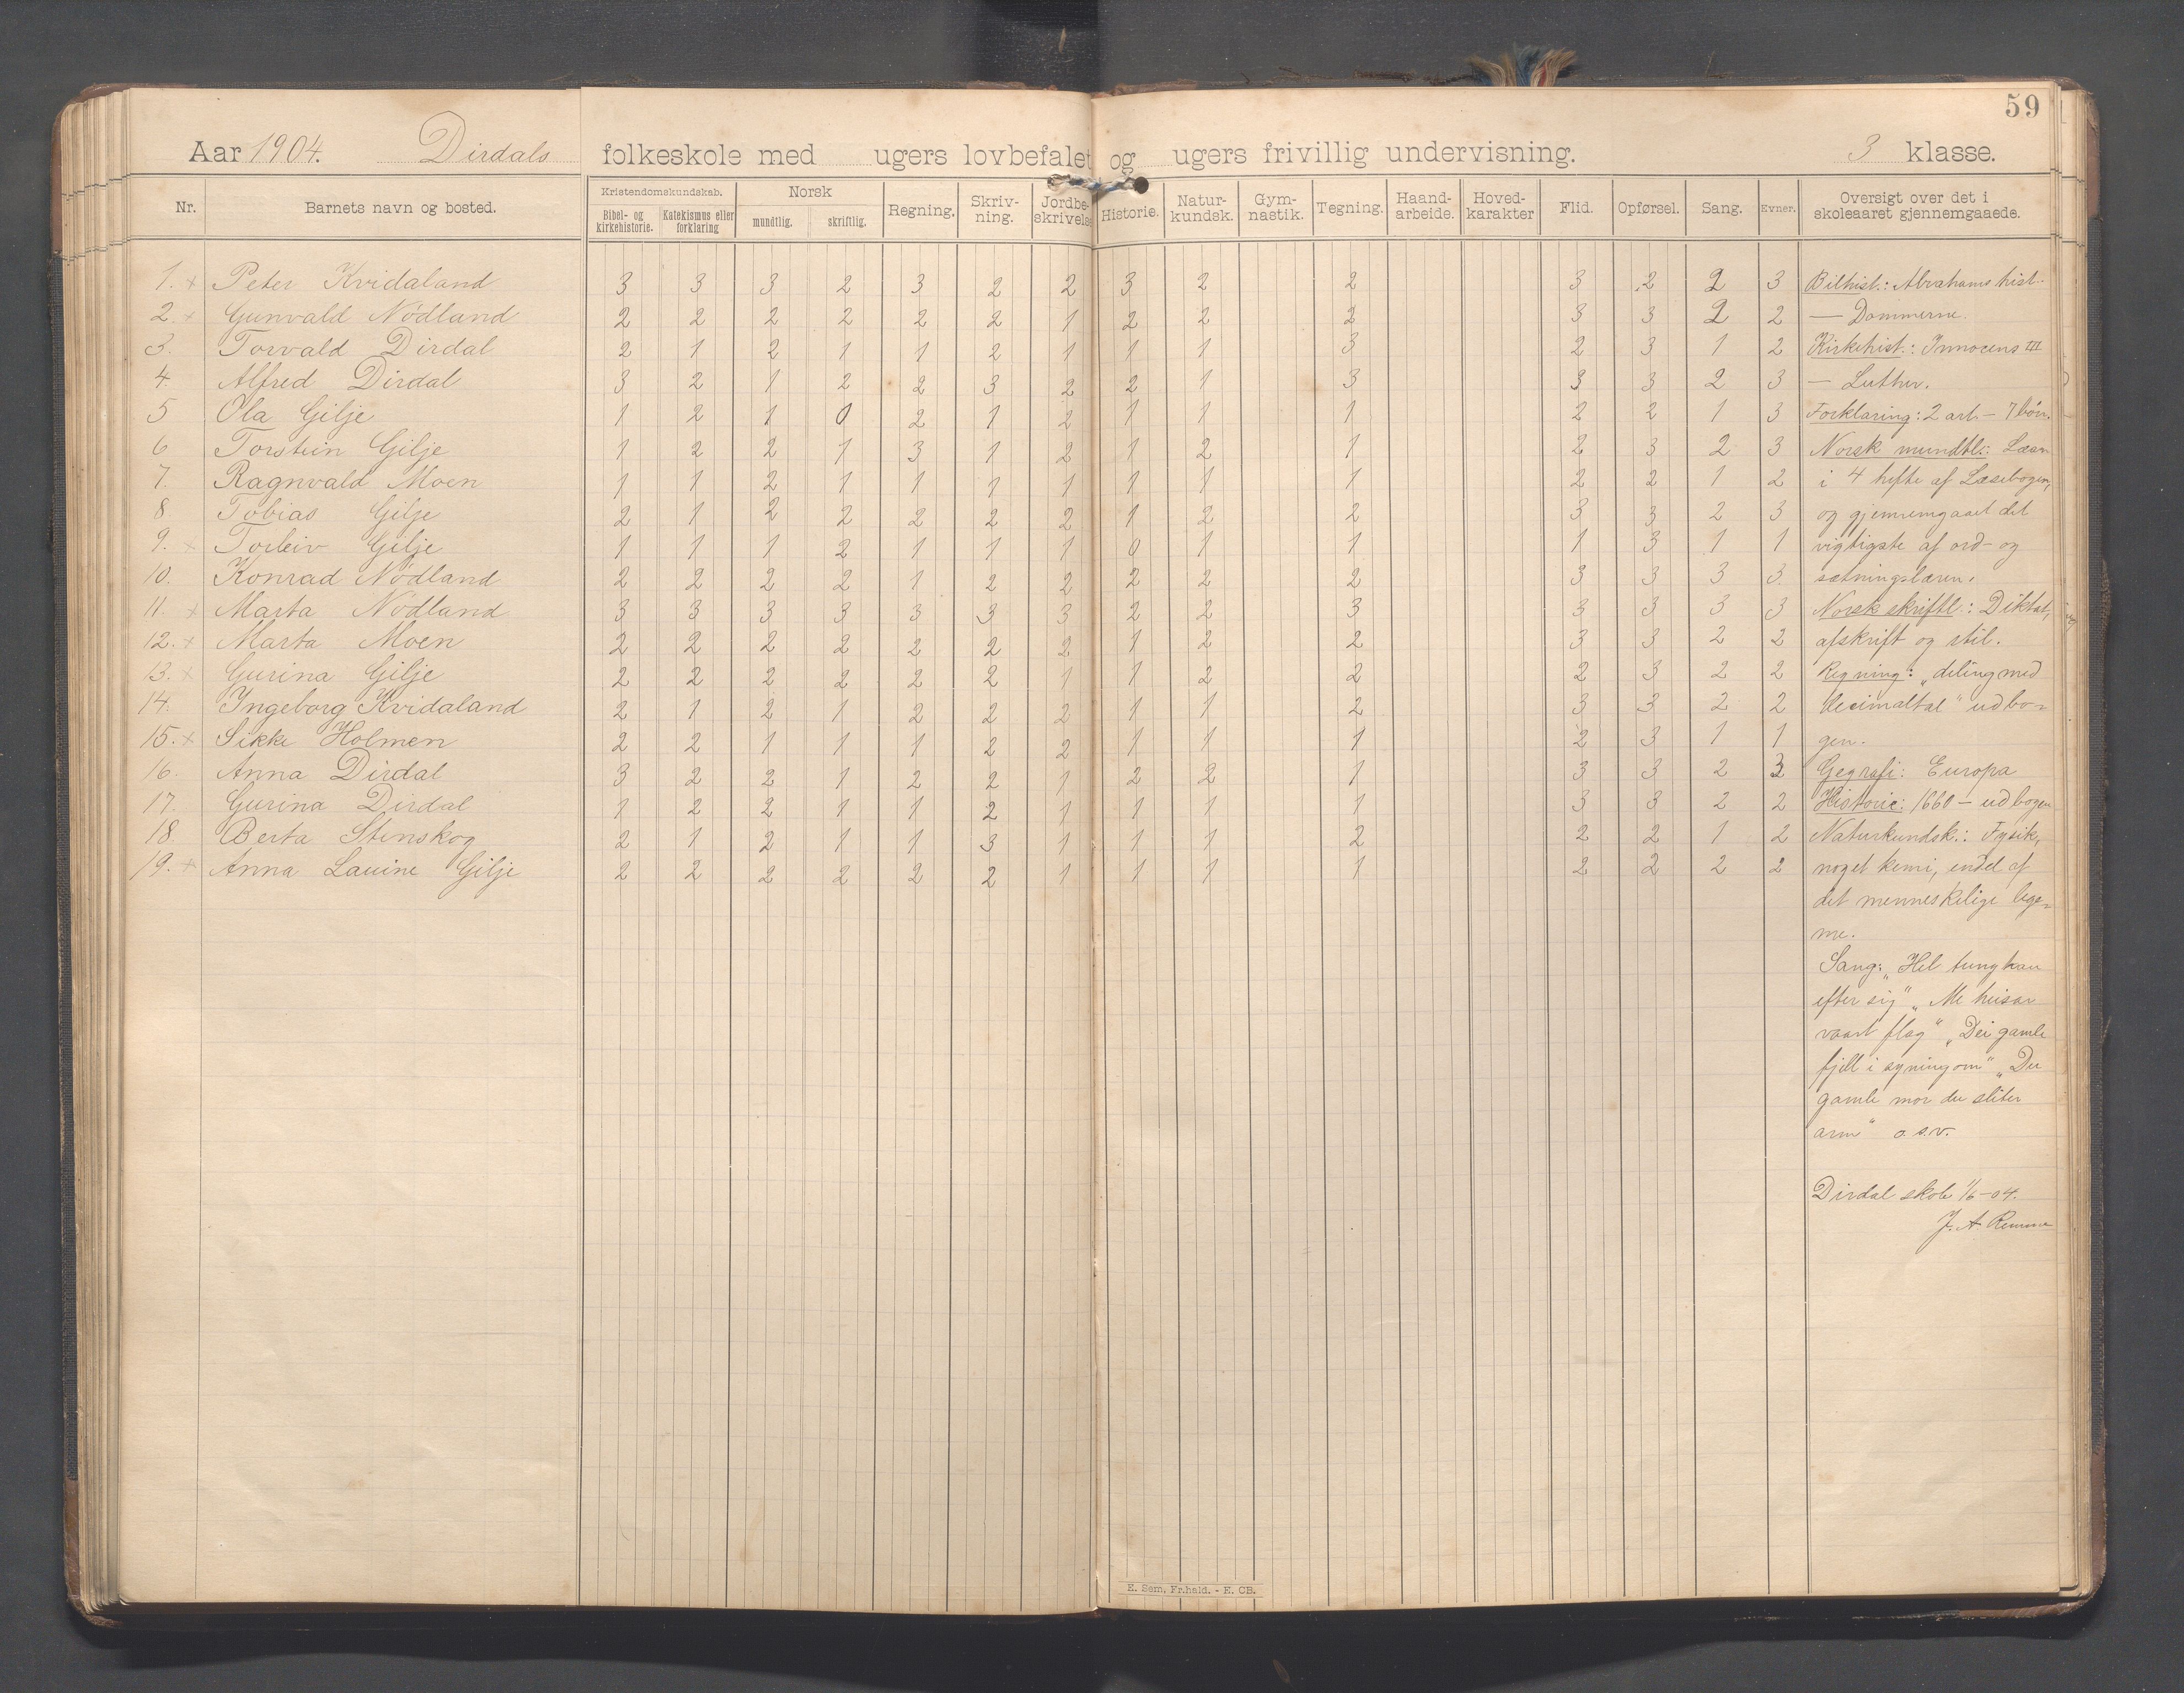 59
Aar 1904. Dirdals folkeskole med ugers lovbefalet og ugers frivillig undervisning. 3 klasse.
Nr. Barnets navn og bosted. Kristendomskundskab. Bibel- og kirkehistorie. Katekismus eller forklaring Norsk mundtlig. skriftlig. Regning. Skriv-ning. Jordbe-skrivelse Historie. Natur-kundsk. Gym-nastik. Tegning. Haand-arbeide. Hoved-karakter Flid. Opførsel. Sang. Evner. Oversigt over det i skoleaaret gjennemgaaede.
1. x Peter Kvidaland 3 3 3 2 3 2 2 3 2 2 3 2 2 3 Bilhist.: Abrahams hist.
2. x Gunvald Nødland 2 2 2 2 2 2 1 2 2 2 3 3 2 2 — Dommerne.
3. Torvald Dirdal 2 1 2 1 1 2 1 1 1 3 2 3 1 2 Kirkehist.: Innocens III
4. Alfred Dirdal 3 2 1 2 2 3 2 2 1 3 3 3 2 3 — Luther.
5 Ola Gilje 1 2 1 0 2 1 2 1 1 1 2 2 1 3 Forklaring: 2 art – 7 bøn.
6 Torstein Gilje 1 2 2 1 3 1 2 1 2 1 2 3 2 3 Norsk mundtl.: Læsn
7. Ragnvald Moen 1 1 2 1 1 1 1 1 1 1 2 2 1 2 i 4 hefte af Læsebogen,
8 Tobias Gilje 2 1 2 2 2 2 2 1 2 2 3 3 2 3 og gjennemgaaet det
9. x Torleiv Gilje 1 1 1 2 1 1 1 0 1 1 1 3 1 1 vigtigste af ord- og
10. Konrad Nødland 2 2 2 2 1 2 2 2 2 2 3 3 3 3 sætningslæren.
11. x Marta Nødland 3 3 3 3 3 3 3 2 2 3 3 3 3 3 Norsk skriftl.: Diktat,
12. x Marta Moen 2 2 2 2 2 2 2 1 2 2 3 3 2 2 afskrift og stil.
13. x Gurina Gilje 2 2 2 2 2 2 1 1 2 2 2 3 2 2 Regning: „deling med
14. Ingeborg Kvidaland 2 1 2 1 2 2 2 1 1 2 3 3 2 2 decimaltal" ud bo-
15. x Sikke Holmen 2 2 1 1 1 2 2 1 1 1 2 3 1 1 gen.
16. Anna Dirdal 3 2 2 1 2 2 1 2 2 1 3 3 2 3 Gegrafi: Europa
17. Gurina Dirdal 1 2 2 1 1 2 1 1 1 1 3 3 2 2 Historie: 1660 – ud bogen
18. Berta Stenskog 2 1 2 1 1 3 1 1 1 2 2 2 1 2 Naturkundsk.: Fysik,
19. x Anna Lauine Gilje 2 2 2 2 2 2 1 1 1 1 2 2 2 2 noget kemi, endel af
det menneskelige lege-
me.
Sang: „Hel tung han
efter sig" „Me heisar
vaart flag" „Dei gamle
fjell i syningom" „Du
gamle mor du sliter
arm" o.s.v.
Dirdal skole 1/6 –04.
J. A. Remme
E. Sem, Fr.hald. - E. CB.